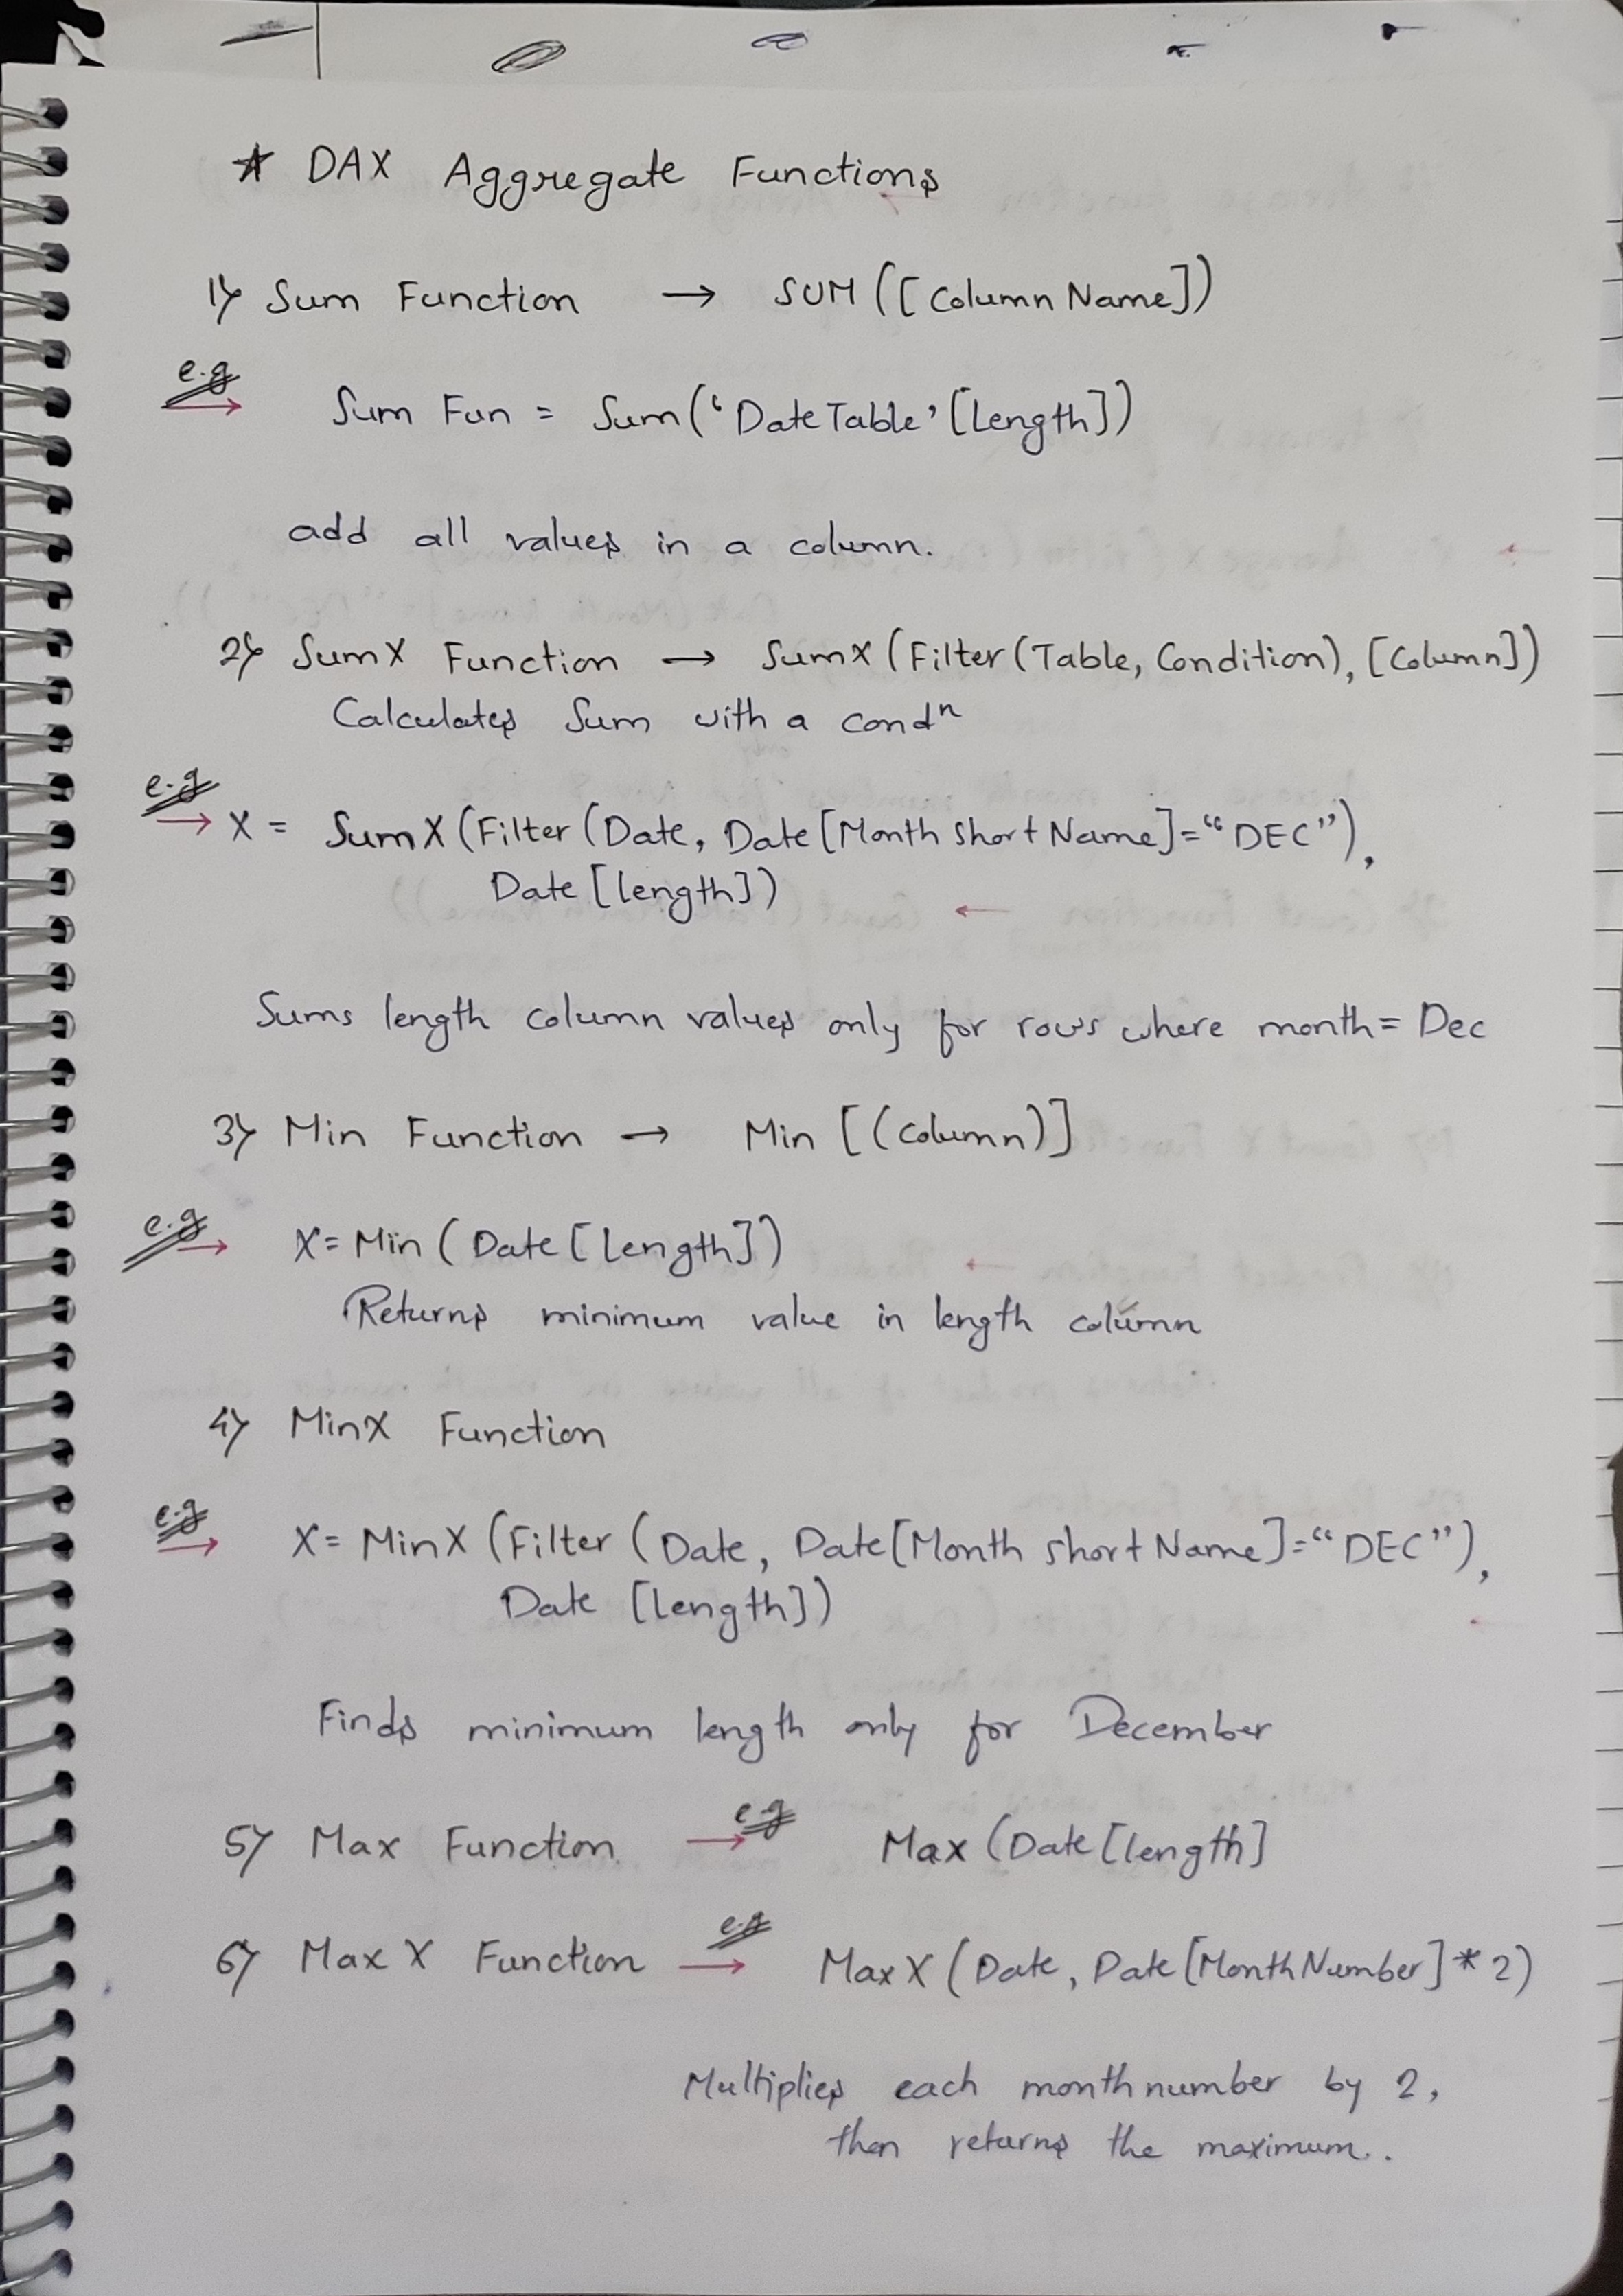 * DAX Aggregate Functions
1) Sum Function → SUM ([Column Name])
e.g → Sum Fun = Sum('Date Table' [Length])
add all values in a column.
2) SumX Function → SumX (Filter (Table, Condition), [Column])
Calculates Sum with a condⁿ
e.g → X = SumX (Filter (Date, Date [Month Short Name] = "DEC"),
Date [length])
Sums length column values only for rows where month = Dec
3) Min Function → Min [(Column)]
e.g → X = Min ( Date [Length])
Returns minimum value in length column
4) MinX Function
e.g → X = MinX (Filter ( Date, Date [Month short Name] = "DEC"),
Date [length])
Finds minimum length only for December
5) Max Function e.g → Max (Date [length]
6) Max X Function e.g → Max X ( Date, Date [Month Number] * 2)
Multiplies each month number by 2,
then returns the maximum..